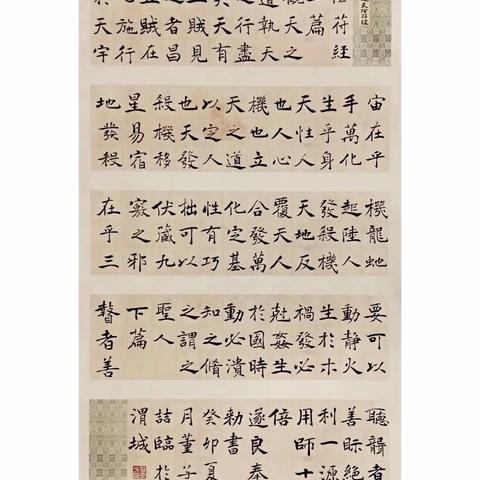 符經
篇
觀天之
道執天
之行盡
矣天有
五賊見
之者昌
五賊在
心施行
於天宇
宙在乎
手萬化
生乎身
天性人
也人心
機也立
天之道
以定人
也天發
殺機移
星易宿
地發殺
機龍虵
起陸人
發殺機
天地反
覆天人
合發萬
化定基
性有巧
拙可以
伏藏九
竅之邪
在乎三
要可以
動靜火
生於木
禍發必
尅姦生
於國時
動必潰
知之脩
之謂之
聖人
下篇
瞽者善
聽聾者
善眎絕
利一源
用師十
倍
遂良奉
勑書
癸卯夏
月董子
喆臨於
渭城